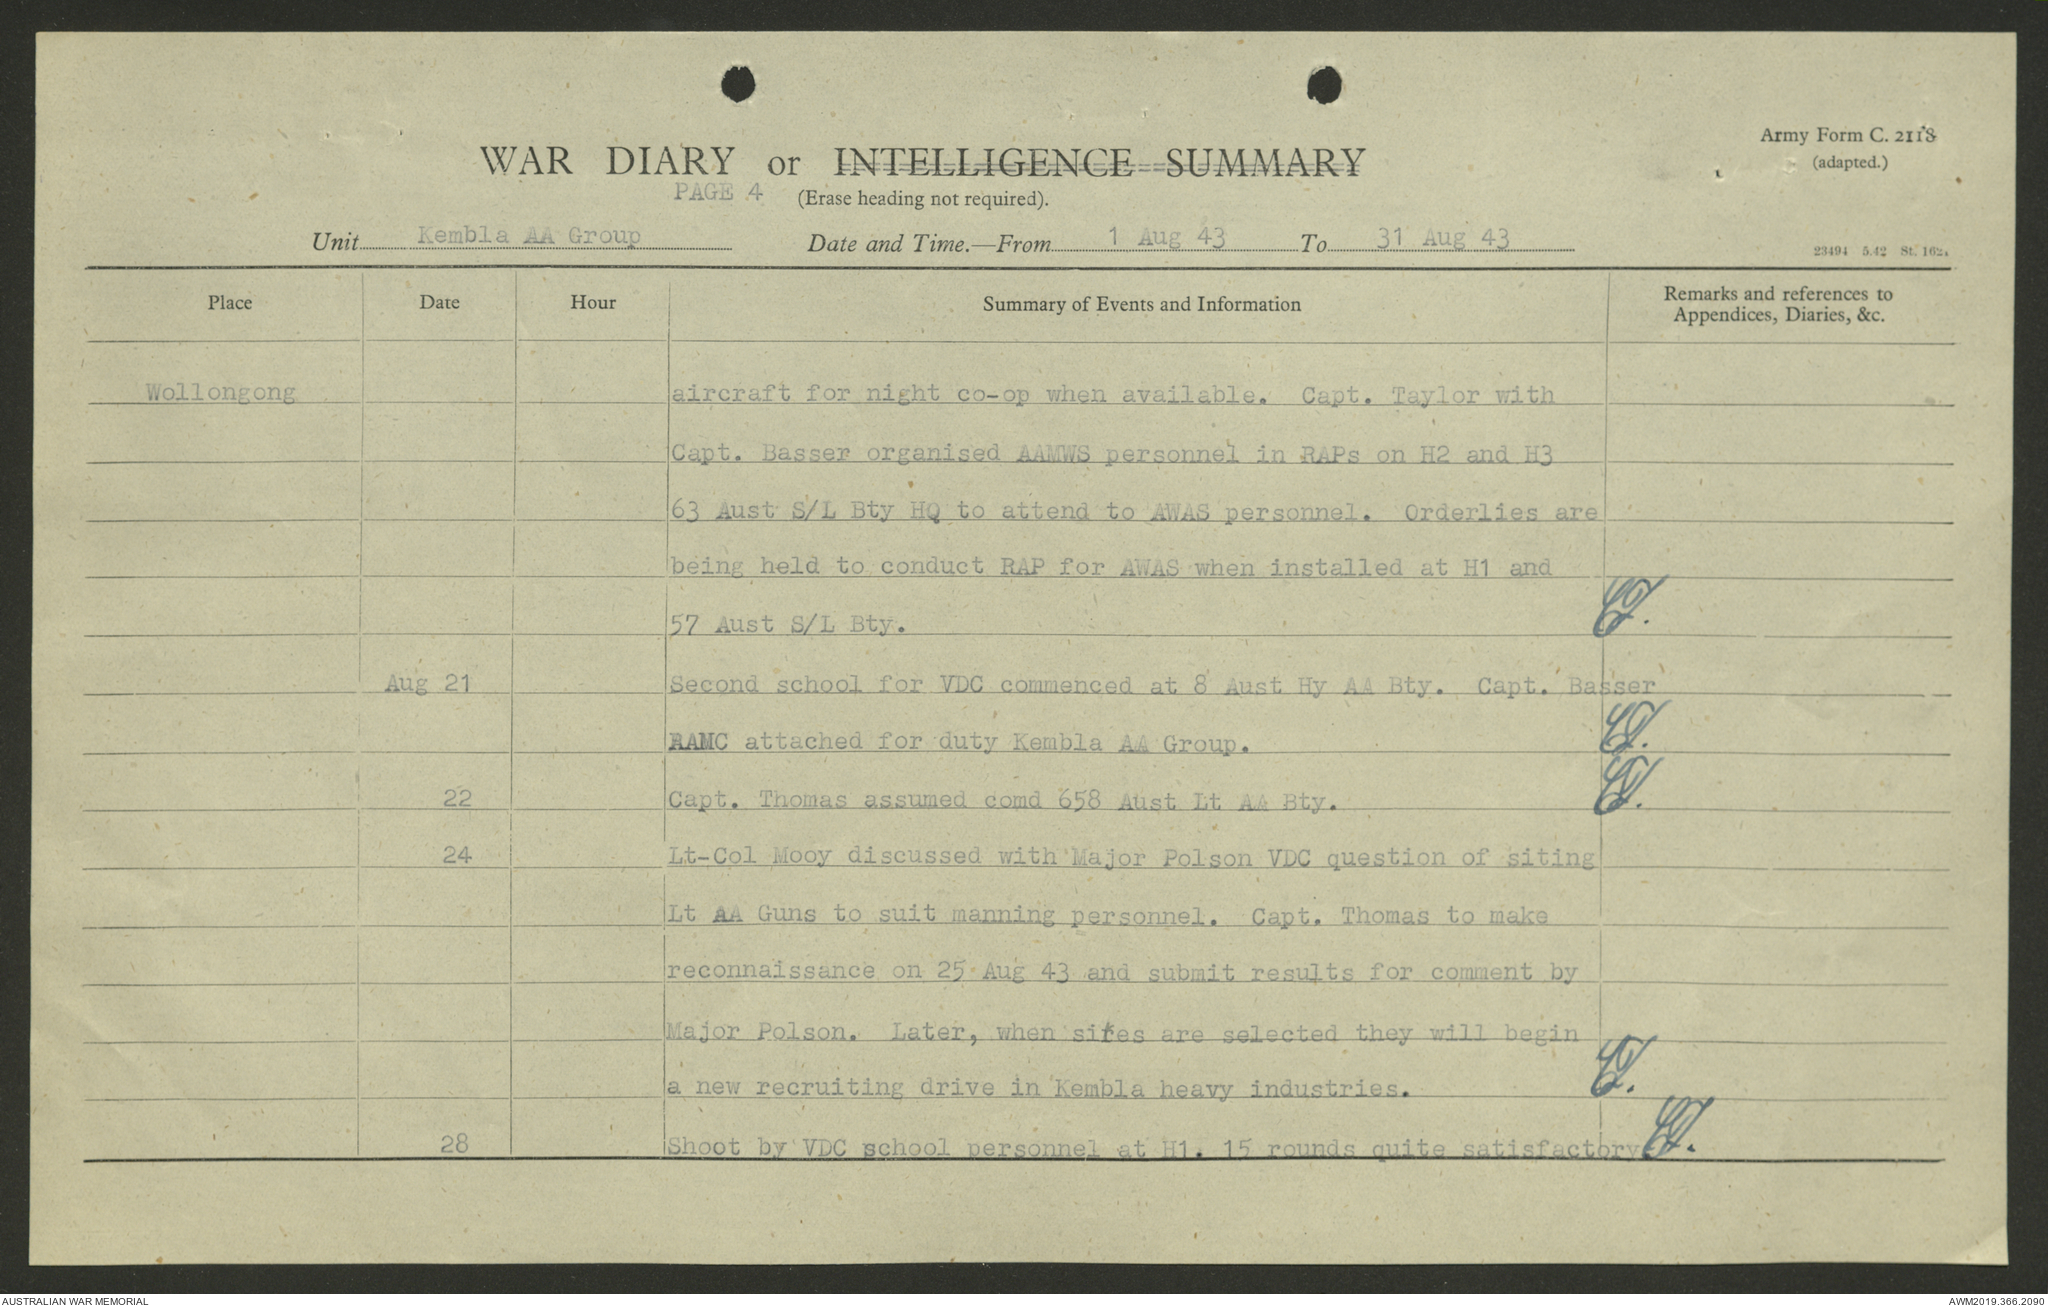 Army Form C. 2118
(adapted.)
WAR DIARY or INTELLIGENCE SUMMARY
PAGE 4 (Erase heading not required).
Unit Kembla AA Group Date and Time.—From 1 Aug 43 To 31 Aug 43
23494 5.42 St. 162
Place Date Hour Summary of Events and Information Remarks and references to
Appendices, Diaries, &c.
Wollongong aircraft for night co-op when available. Capt. Taylor with
Capt. Basser organised AAMWS personnel in RAPs on H2 and H3
63 Aust S/L Bty HQ to attend to AWAS personnel. Orderlies are
being held to conduct RAP for AWAS when installed at H1 and
57 Aust S/L Bty.
Aug 21 Second school for VDC commenced at 8 Aust Hy AA Bty. Capt. Basser
AAMC attached for duty Kembla AA Group.
22 Capt. Thomas assumed comd 658 Aust Lt AA Bty.
24 Lt-Col Mooy discussed with Major Polson VDC question of siting
Lt AA Guns to suit manning personnel. Capt. Thomas to make
reconnaissance on 25 Aug 43 and submit results for comment by
Major Polson. Later, when sites are selected they will begin
a new recruiting drive in Kembla heavy industries.
28 Shoot by VDC school personnel at H1. 15 rounds quite satisfactory
AUSTRALIAN WAR MEMORIAL AWM2019.366.2090